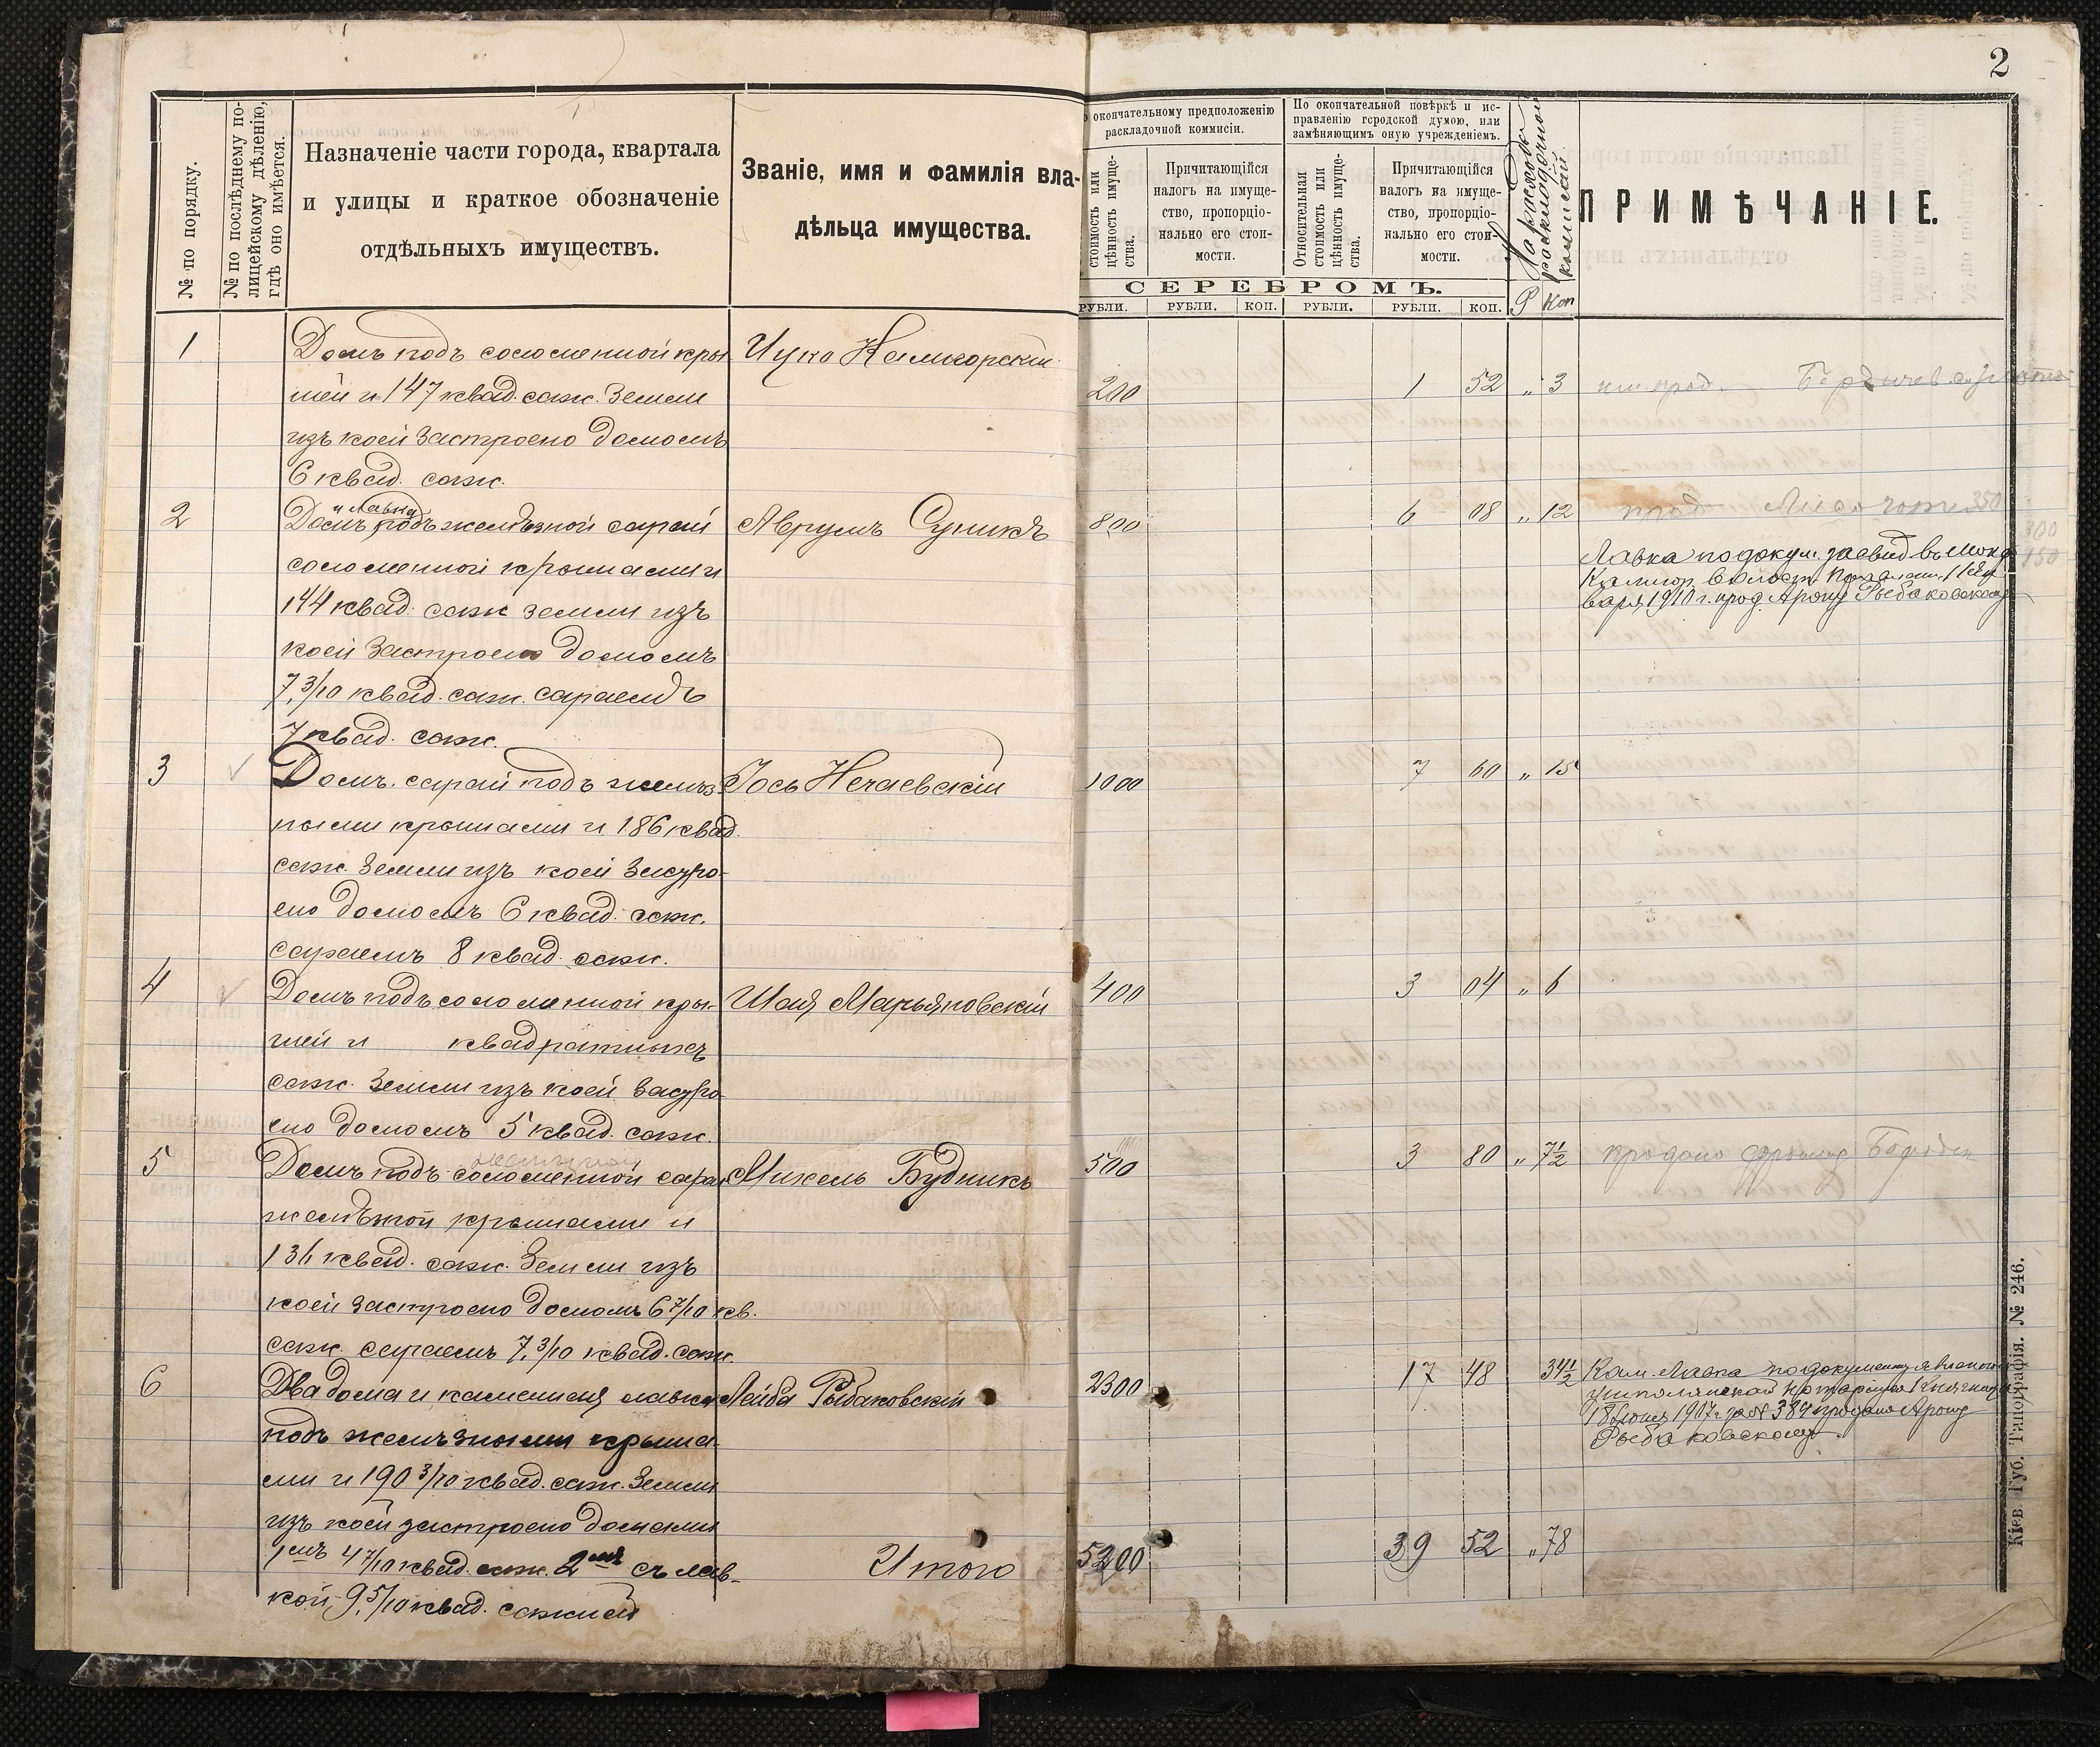 2
№ по порядку.
№ по послѣднему по-
лицейскому дѣленію,
гдѣ оно имѣется.
Назначеніе части города, квартала
и улицы и краткое обозначеніе
отдѣльныхъ имуществъ.
Званіе, имя и фамилія вла-
дѣльца имущества.
окончательному предположенію
раскладочной коммисіи.
стоимость или
цѣнность имуще-
ства.
Причитающійся
налогъ на имуще-
ство, пропорціо-
нально его стои-
мости.
По окончательной повѣркѣ и ис-
правленію городской думою, или
замѣняющимъ оную учрежденіемъ.
Относительная
стоимость или
цѣнность имуще-
ства.
Причитающійся
налогъ на имуще-
ство, пропорціо-
нально его стои-
мости.
На расхода
раскладочной
комисіи
ПРИМѢЧАНІЕ.
СЕРЕБРОМЪ.
РУБЛИ. РУБЛИ. КОП. РУБЛИ. РУБЛИ. КОП. Р Коп
1 Домъ подъ соломенной кры Ицко
шей и 147 квад. саж. земли 200 1 52 „ 3
изъ коей застроено домомъ
6 квад. саж.
и лавка
2 Домъ подъ желѣзной сарай Аврумъ Суникъ 800 6 08 „ 12 прод 350
соломенной крышами и
144 квад. саж земли изъ
коей застроено домомъ
7,3/10 квад. саж. сараемъ
7 квад. саж.
300
150
Лавка по докум. засвид въ
Калигор. волост.
варя 1910 г. прод. Арону Рыбаковскому
3 Домъ. сарай подъ желѣз Іось Нечаевскій 1000 7 60 „ 15
ными крышами и 186 квад.
саж. земли изъ коей застро-
ено домомъ 6 квад. саж.
сараемъ 8 квад. саж.
4 Домъ подъ соломенной кры- Шая Марьяновскій 400 3 04 „ 6
шей и квадратныхъ
саж. земли изъ коей застро
ено домомъ 5 квад. саж.
5 Домъ подъ соломенной сарай Михель Будникъ 500 3 80 „ 7 1/2 продано
желѣзной крышами и
136 квад. саж. земли изъ
коей застроено домомъ 6 7/10 кв.
саж. сараемъ 7,3/10 квад. саж.
6 Два дома и каменная лавка Лейба Рыбаковскій 2300 17 48 34 1/2
подъ желѣзными крыша-
ми и 190 3/10 квад. саж. земли
изъ коей застроено домами
1мъ 4 7/10 квад. саж. 2мъ съ лав-
кой, 9,5/10 квад. саженей
Кам. Лавка по документу
18 1907 г. за № 389 продана Арону
Рыбаковскому
Итого 5200 39 52 „ 78
Кіев. Губ. Типографія. № 246.